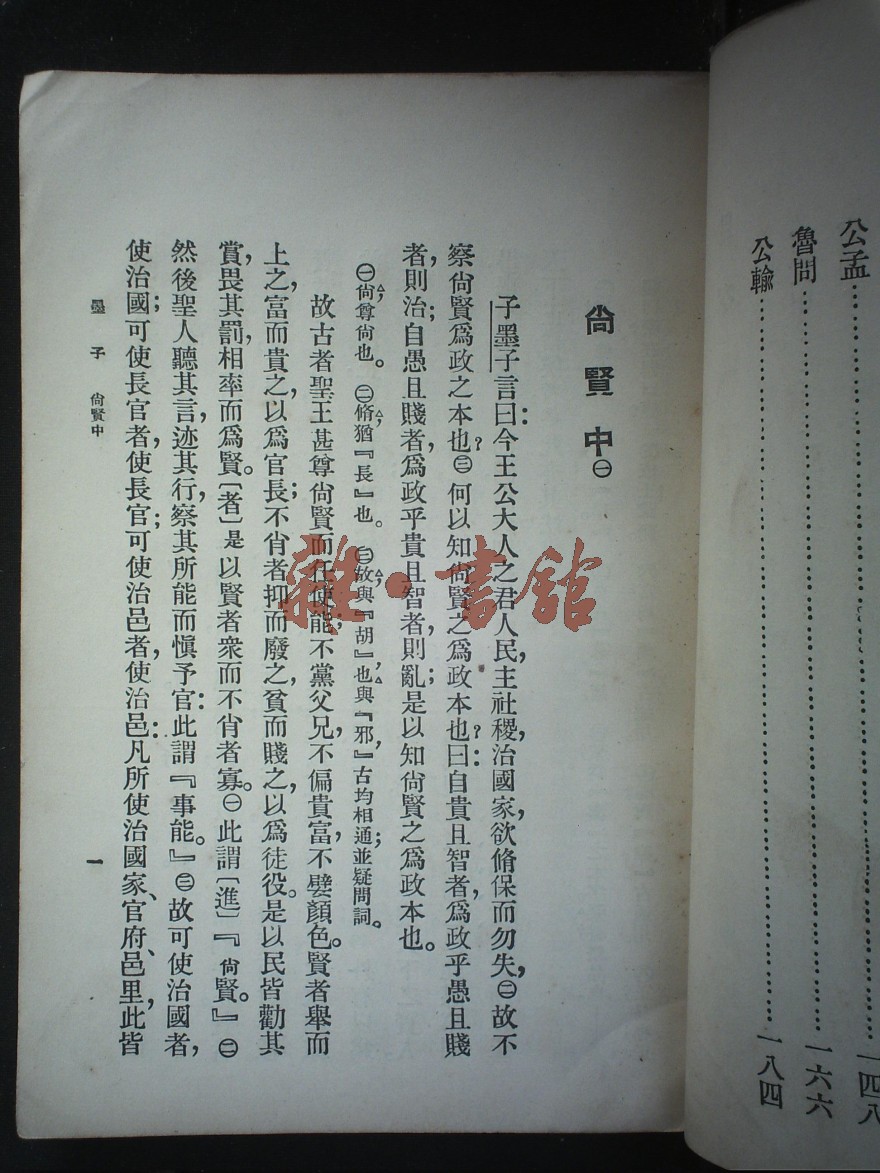 公孟……………………一四八
魯問……………………一六六
公輸……………………一八四
尙賢中㊀
子墨子言曰：今王公大人之君人民，主社稷，治國家，欲脩保而勿失，㊁故不
察尙賢爲政之本也？㊂何以知尙賢之爲政本也？曰：自貴且智者，爲政乎愚且賤
者，則治；自愚且賤者，爲政乎貴且智者，則亂；是以知尙賢之爲政本也。
㊀尙，尊尙也。㊁脩，猶『長』也。㊂故，與『胡』，也，與『邪』，古均相通；並疑問詞。
故古者聖王甚尊尙賢而任使能；不黨父兄，不偏貴富，不嬖顏色。賢者舉而
上之，富而貴之，以爲官長；不肖者抑而廢之，貧而賤之，以爲徒役。是以民皆勸其
賞，畏其罰，相率而爲賢。〔者〕是以賢者衆而不肖者寡。㊀此謂〔進〕『尙賢。』㊁
然後聖人聽其言，迹其行，察其所能而愼予官：此謂『事能。』㊂故可使治國者，
使治國；可使長官者，使長官；可使治邑者，使治邑：凡所使治國家、官府、邑里，此皆
墨子 尙賢中
一
雜·書館